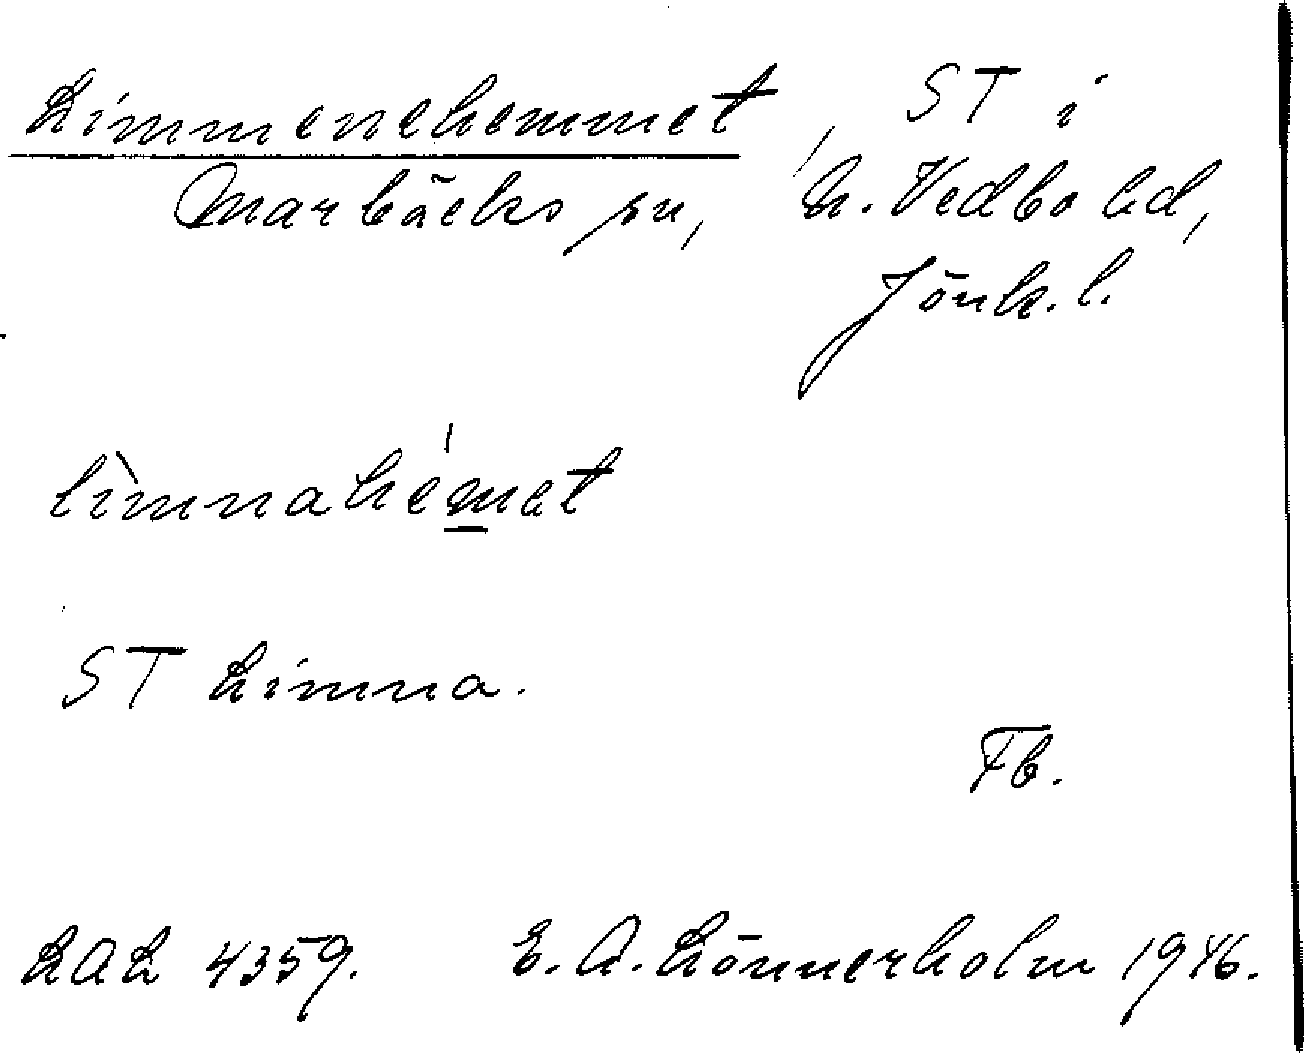 Limmenehemmet, ST i
Marbäcks sn, N. Vedbo hd,
Jönk. l.
lìmnahémet
ST Limna.
Fb.
LAL 4359. E. A. Lönnerholm 1946.